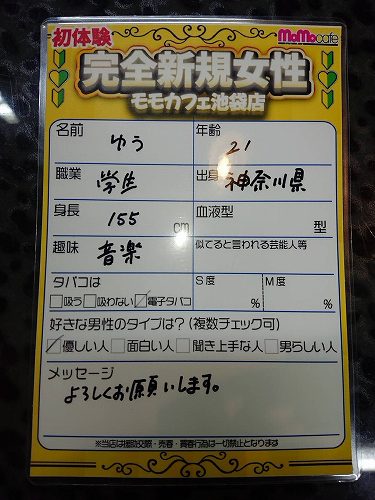 初体験 MoMocafe
完全新規女性
モモカフェ池袋店
名前 ゆう 年齢 21
職業 学生 出身 神奈川県
身長 155 cm 血液型 型
趣味 音楽 似てると言われる芸能人等
タバコは S度 M度
□吸う □吸わない ☑電子タバコ % %
好きな男性のタイプは？(複数チェック可)
☑優しい人 □面白い人 □聞き上手な人 □男らしい人
メッセージ
よろしくお願いします。
※当店は援助交際・売春・買春行為は一切禁止となります